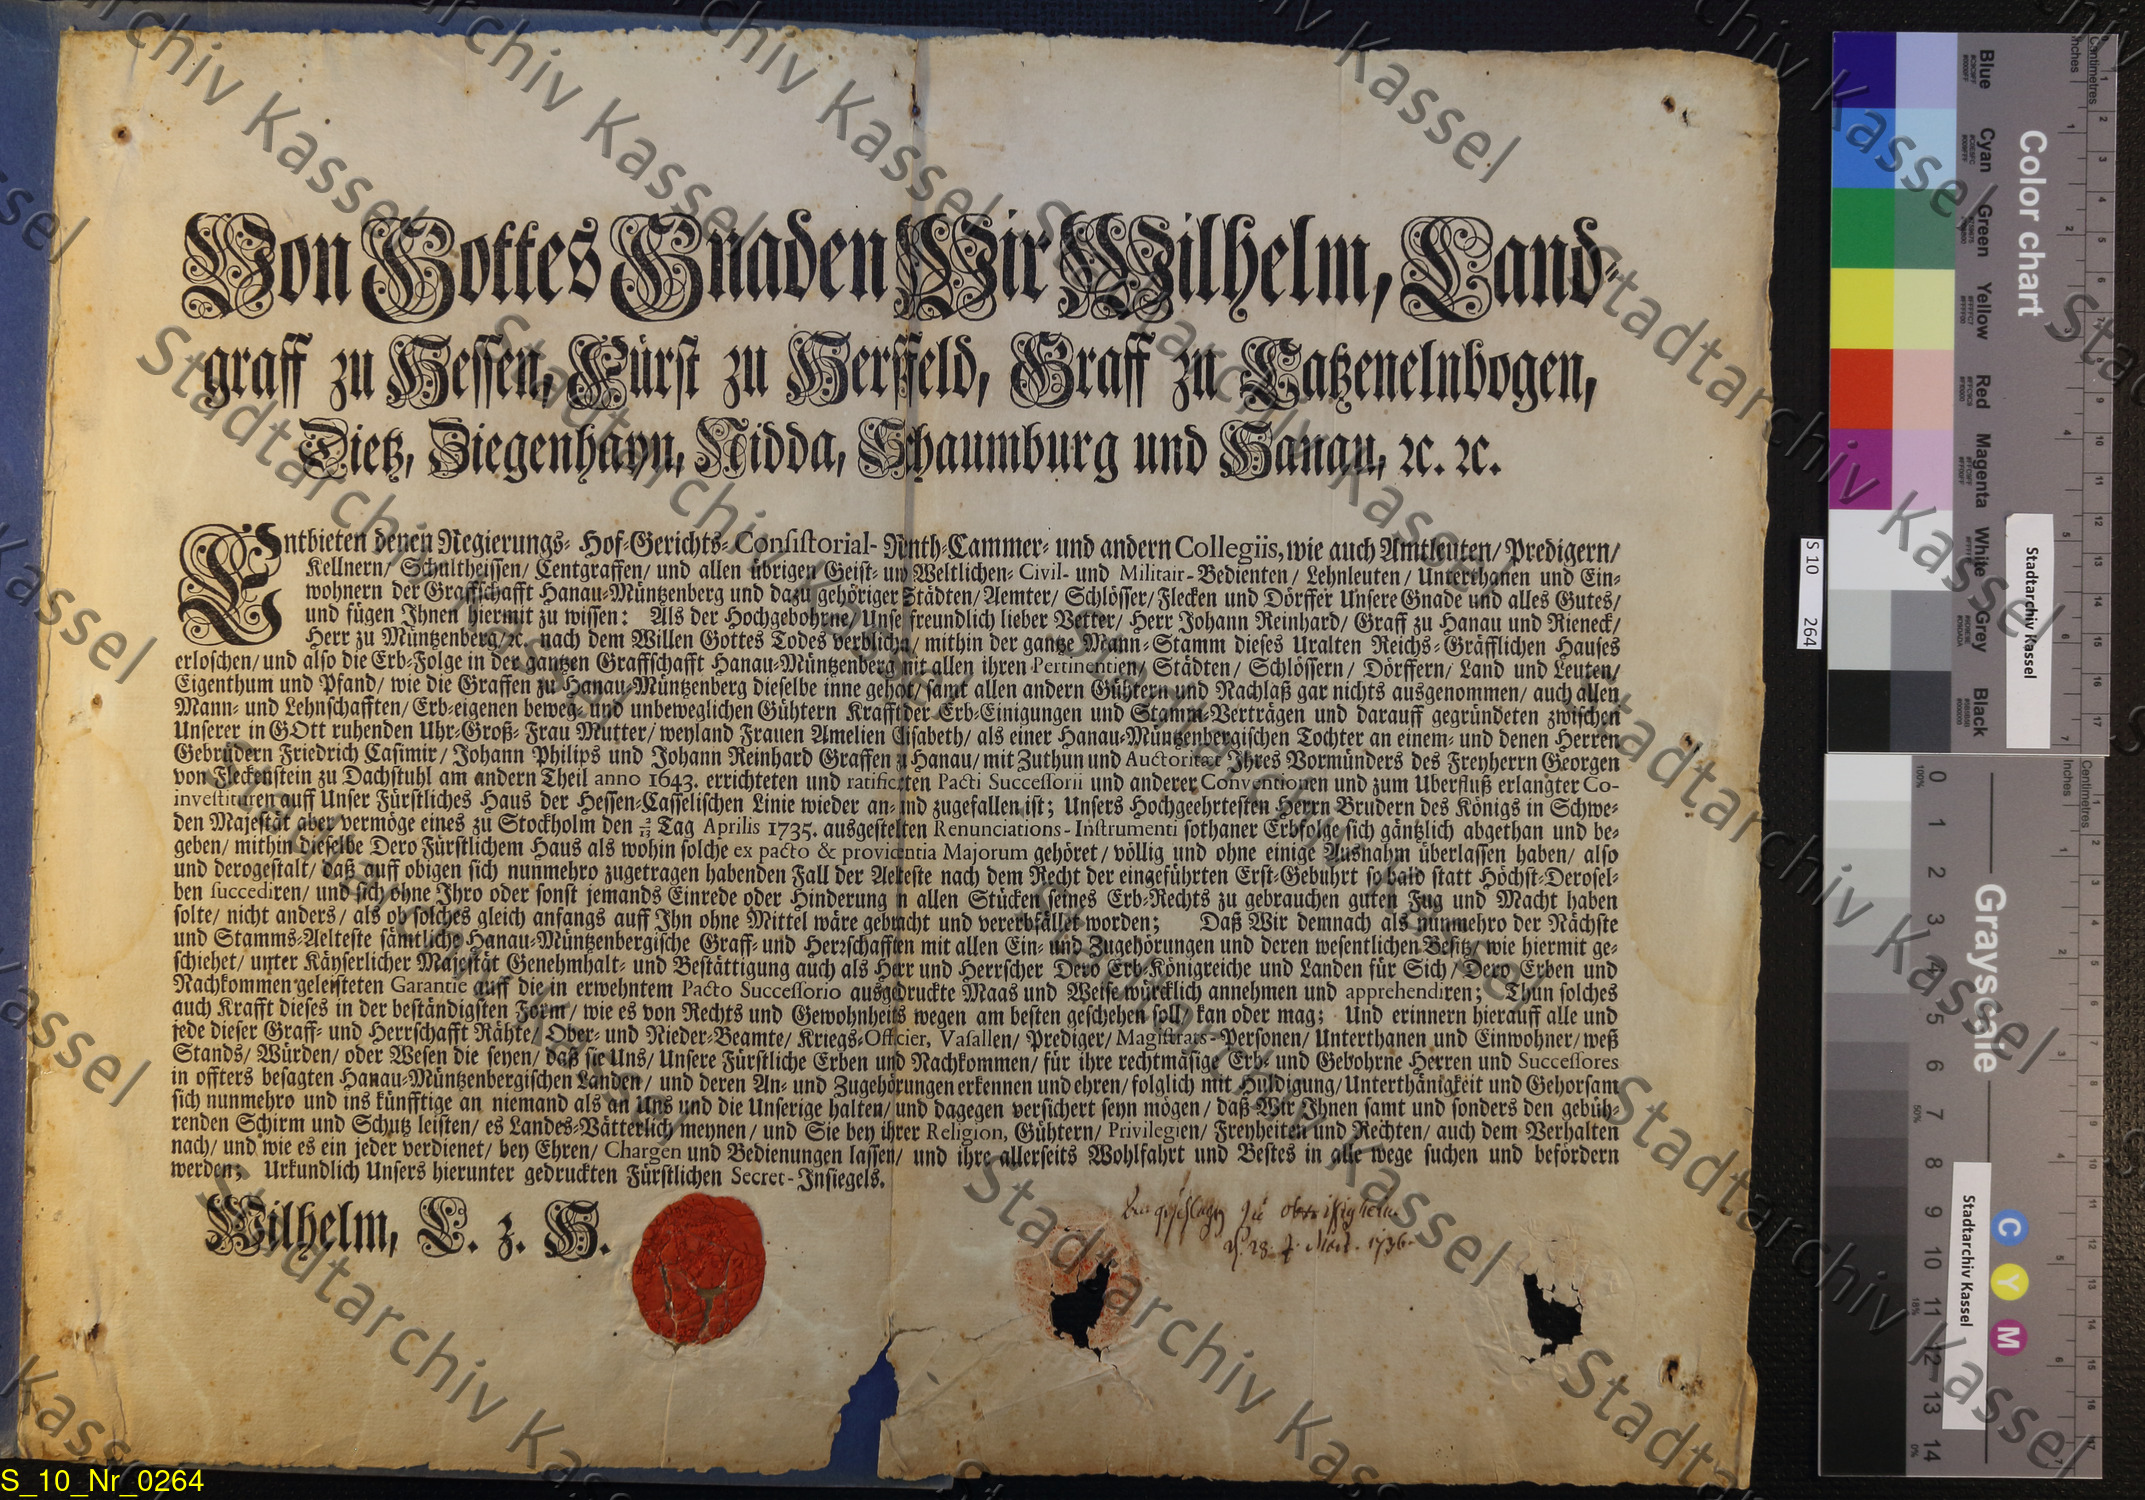 Von Gottes Gnaden Wir Wilhelm, Land-
graff zu Hessen, Fürst zu Herßfeld, Graff zu Catzenelnbogen,
Dietz, Ziegenhayn, Nidda, Schaumburg und Hanau, ꝛc. ꝛc.
Entbieten denen Regierungs- Hof-Gerichts- Consistorial- Renth-Cammer- und andern Collegiis, wie auch Amtleuten/ Predigern/
Kellnern/ Schultheissen/ Centgraffen/ und allen übrigen Geist- und Weltlichen- Civil- und Militair-Bedienten/ Lehnleuten/ Unterthanen und Ein-
wohnern der Graffschafft Hanau-Müntzenberg und dazu gehöriger Städten/ Aemter/ Schlösser/ Flecken und Dörffer Unsere Gnade und alles Gutes/
und fügen Ihnen hiermit zu wissen: Als der Hochgebohrne/ Unser freundlich lieber Vetter/ Herr Johann Reinhard/ Graf zu Hanau und Rieneck/
Herr zu Müntzenberg/ ꝛc. nach dem Willen Gottes Todes verblichen/ mithin der gantze Mann-Stamm dieses Uralten Reichs-Gräfflichen Hauses
erloschen/ und also die Erb-Folge in der gantzen Graffschafft Hanau-Müntzenberg mit allen ihren Pertinentien/ Städten/ Schlössern/ Dörffern/ Land und Leuten/
Eigenthum und Pfand/ wie die Graffen zu Hanau-Müntzenberg dieselbe inne gehat/ samt allen andern Gühtern und Nachlaß gar nichts ausgenommen/ auch allen
Mann- und Lehnschafften/ Erb-eigenen beweg- und unbeweglichen Gühtern Krafft der Erb-Einigungen und Stamm-Verträgen und darauff gegründeten zwischen
Unserer in GOtt ruhenden Uhr-Groß- Frau Mutter/ weyland Frauen Amelien Elisabeth/ als einer Hanau-Müntzenbergischen Tochter an einem- und denen Herren
Gebrüdern Friedrich Casimir/ Johann Philips und Johann Reinhard Graffen zu Hanau/ mit Zuthun und Auctoritæt Ihres Vormünders des Freyherrn Georgen
von Fleckenstein zu Dachstuhl am andern Theil anno 1643. errichteten und ratificirten Pacti Successorii und anderer Conventionen und zum Uberfluß erlangter Co-
investituren auff Unser Fürstliches Haus der Hessen-Casselischen Linie wieder an- und zugefallen ist; Unsers Hochgeehrtesten Herrn Brudern des Königs in Schwe-
den Majestät aber vermöge eines zu Stockholm den Tag Aprilis 1735. ausgestelten Renunciations-Instrumenti sothaner Erbfolge sich gäntzlich abgethan und be-
geben/ mithin dieselbe Dero Fürstlichem Haus als wohin solche ex pacto & providentia Majorum gehöret/ völlig und ohne einige Ausnahm überlassen haben/ also
und derogestalt/ daß auff obigen sich nunmehro zugetragen habenden Fall der Aelteste nach dem Recht der eingeführten Erst-Gebuhrt so bald statt Höchst-Derosel-
ben succediren/ und sich ohne Ihro oder sonst jemands Einrede oder Hinderung in allen Stücken seines Erb-Rechts zu gebrauchen guten Fug und Macht haben
solte/ nicht anders/ als ob solches gleich anfangs auff Ihn ohne Mittel wäre gebracht und vererbfället worden; Daß Wir demnach als nunmehro der Nächste
und Stamms-Aelteste sämtliche Hanau-Müntzenbergische Graff- und Herrschafften mit allen Ein- und Zugehörungen und deren wesentlichen Besitz/ wie hiermit ge-
schiehet/ unter Käyserlicher Majestät Genehmhalt- und Bestättigung auch als Herr und Herrscher Dero Erb-Königreiche und Landen für Sich/ Dero Erben und
Nachkommen geleisteten Garantie auff die in erwehntem Pacto Successorio ausgedruckte Maas und Weise würcklich annehmen und apprehendiren; Thun solches
auch Krafft dieses in der beständigsten Form/ wie es von Rechts und Gewohnheits wegen am besten geschehen soll/ kan oder mag; Und erinnern hierauff alle und
jede dieser Graff- und Herrschafft Rähte/ Ober- und Nieder-Beamte/ Kriegs-Officier, Vasallen/ Prediger/ Magistrats-Personen/ Unterthanen und Einwohner/ weß
Stands/ Würden/ oder Wesen die seyen/ daß sie Uns/ Unsere Fürstliche Erben und Nachkommen/ für ihre rechtmäsige Erb- und Gebohrne Herren und Successores
in offters besagten Hanau-Müntzenbergischen Landen/ und deren An- und Zugehörungen erkennen und ehren/ folglich mit Huldigung/ Unterthänigkeit und Gehorsam
sich nunmehro und ins künfftige an niemand als an Uns und die Unserige halten/ und dagegen versichert seyn mögen/ daß Wir Ihnen samt und sonders den gebüh-
renden Schirm und Schutz leisten/ es Landes-Vätterlich meynen/ und Sie bey ihrer Religion, Gühtern/ Privilegien/ Freyheiten und Rechten/ auch dem Verhalten
nach/ und wie es ein jeder verdienet/ bey Ehren/ Chargen und Bedienungen lassen/ und ihre allerseits Wohlfahrt und Bestes in alle wege suchen und befördern
werden; Urkundlich Unsers hierunter gedruckten Fürstlichen Secret-Insiegels.
Wilhelm, L. z. H.
angeschlagen zu
d. 28. t. Mart. 1736.
S_10_Nr_0264
S 10 264
Color chart
Blue Cyan Green Yellow Red Magenta White Grey Black
Grayscale
Stadtarchiv Kassel
Stadtarchiv Kassel
Centimetres
Inches
0 1 2 3 4 5 6 7 8 9 10 11 12 13 14
C Y M